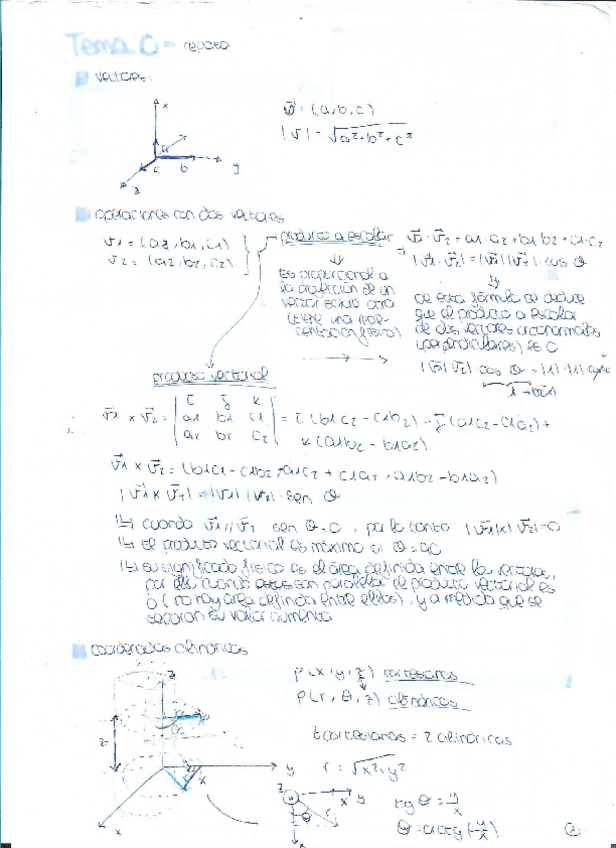 Tema. 0 = repaso
vectores:
x
y
z
a
b
c
v⃗ = (a,b,c)
|v| = √a²+b²+c²
operaciones con dos vectores
v1 = (a1, b1, c1)
v2 = (a2, b2, c2)
producto escalar
v⃗1 · v⃗2 = a1·a2 + b1 b2 + c1·c2
|v⃗1 · v⃗2| = |v⃗1| |v⃗2| · cos θ
Es proporcional a
la proyección de un
vector sobre otro
(tiene una repre-
sentación física)
de esta fórmula se deduce
que el producto escalar
de dos vectores ortonormales
(perpendiculares) es 0
|v⃗1| |v⃗2| cos θ =
producto vectorial
v⃗1 × v⃗2 = | i j k | = i (b1c2 - c1b2) - j (a1c2 - c1a2) +
a1 b1 c1
a2 b2 c2
k (a1b2 - b1a2)
v⃗1 × v⃗2 = (b1c2 - c1b2, -a1c2 + c1a2, a1b2 - b1a2)
|v⃗1 × v⃗2| = |v1| |v2| · sen θ
cuando v⃗1 // v⃗2 sen θ = 0, por lo tanto |v⃗1 × v⃗2| = 0
El producto vectorial es máximo si θ = 90
su significado físico es el área definida entre los vectores,
por ello cuando estos son paralelos el producto vectorial es
0 (no hay área definida entre ellos), y a medida que se
separan su valor aumenta
coordenadas cilíndricas
P(x, y, z) cartesianas
P(r, θ, z) cilíndricas
z cartesianas = z cilíndricas
r = √x²+y²
tg θ = y/x
θ = arctg (y/x)
z
y
x
z
x
y
r
θ
2